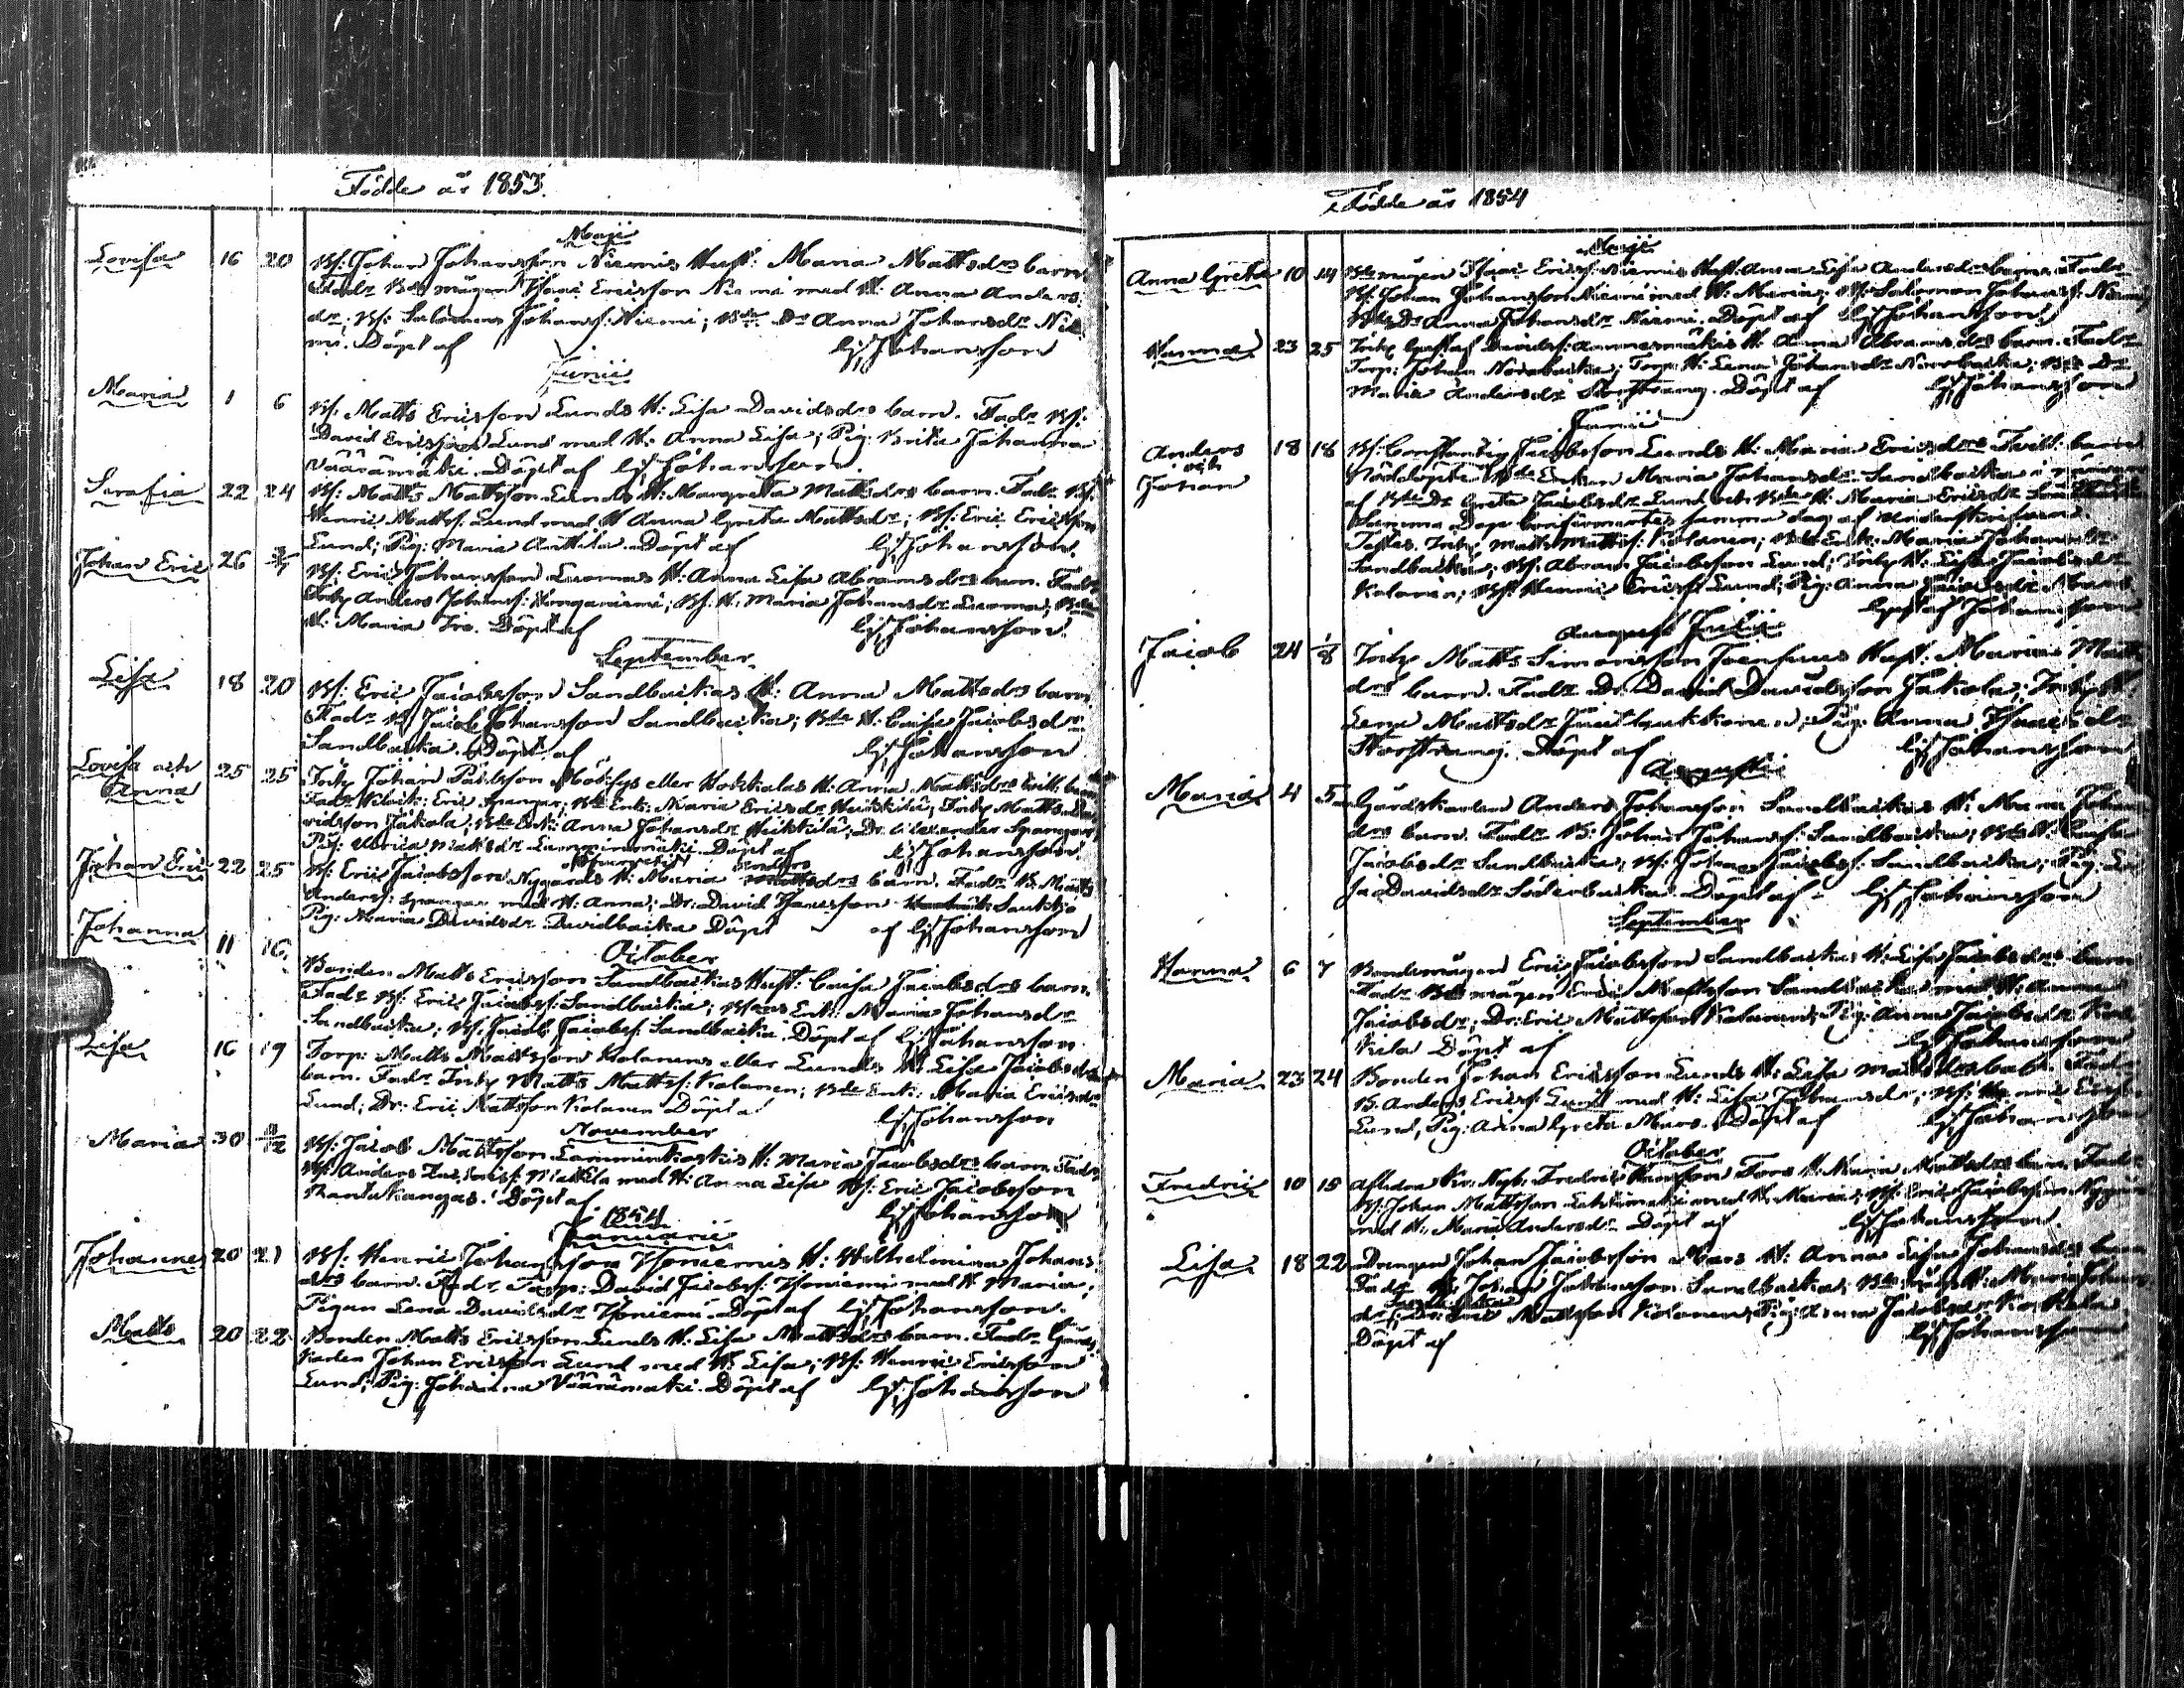 Födde år 1853.
Maji
Lovisa 16 20 Bf: Johan Johansson Niemis Hust: Maria Mattsdrs barn
Fadr Bdemågen Isaac Ericsson Niemi med H: Anna Anders
dr; Bf: Salomon Johansf: Niemi; Bde Dr Anna Johansdr Nie
mi. Döpt af Gf Johansson
Junii
Maria 1 6 Bf. Matts Ericsson Lunds H: Lisa Davidsdrs barn. Fadr Bf:
David Ericsson Lund med H: Anna Lisa; Pig: Brita Johanna
Väärämäki. Döpt af Gf Johansson.
Serafia 22 24 Bf: Matts Mattsson Lunds H: Margreta Mattsdrs barn. Fadr Bf.
Henric Mattsf. Lund med H Anna Greta Mattsdr; Bf: Eric Ericsson
Lund; Pig: Maria Anttila. Döpt af Gf Johansson.
Johan Eric 26 Bf: Eric Johansson Luomas H: Anna Lisa Abramsdrs barn. Fadr
Inhy Anders Johansf: Bf: H: Maria Johansdr Luoma; Bde
H: Maria Iro. Döpt af Gf Johansson.
September
Lisa 18 20 Bf: Eric Jacobsson Sandbackas H: Anna Mattsdrs barn
Fadr Bf Jacob Johansson Sandbacka; Bde H: Caisa Jacobsdr
Sandbacka. Döpt af Gf Johansson
Lovisa och Anna 25 25 Inhy Johan Pärsson eller H: Anna Mattsdrs tvill: barn
Fadr Eric Spangar; Bde Enk: Maria Ericsdr Heikkilä; Inhy Matts Da
vidsson Jakola; Bde Enk: Anna Johansdr Heikkilä; Dr. Alexander Spangar
Pig: Ulrica Mattsdr Lamminmäki. Döpt af Gf Johansson
Johan Eric 22 25 Bf: Eric Jacobsson Nygårds H: Maria Anders drs barn. Fadr B. Matts
Andersf: Spangar med H: Anna; Dr: David Isacsson Sautkjö
Pig: Maria Davidsdr Davidbacka Döpt af Gf Johansson
October
Johanna 11 16. Bonden Matts Ericsson Sandbackas Hust: Caisa Jacobsdrs barn.
Fadr Bf: Eric Jacobsf: Sandbacka; Enk: Maria Johansdr
Sandbacka; Bf: Jacob Jacobsf: Sandbacka Döpt af Gf Johansson.
Lisa 16 19 Torp: Matts Mattsson Kolanens eller Lunds H: Lisa Jacobsdrs
barn. Fadr Inhy Matts Mattsf: Kolanen; Bde Enk: Maria Ericsdr
Lund; Dr: Eric Mattsson Kolanen Döpt af Gf Johansson
November
Maria 30 Bf: Jacob Mattsson Lamminkoskis H: Maria Jacobsdrs barn. Fadr
Bf: Anders Mattila med H: Anna Lisa Bf: Eric Jacobsson
Rantakangas. Döpt af Gf Johansson
1854
Januarii
Johannes 20 21 Bf: Henric Johansson Isoniemis H: Wilhelmina Johans
drs barn. Fadr Torp: David Jacobsf: Isoniemi med H. Maria;
Pigan Lena Davidsdr Isoniemi Döpt af Gf Johansson.
Matts 20 22 Bonden Matts Ericsson Lunds H. Lisa Mattsdrs barn. Fadr Gårds
karlen Johan Ericsson Lund med H: Lisa; Bf: Henric Ericsson
Lund; Pig: Johanna Väärämäki. Döpt af Gf Johansson
Födde år 1854
Maji
Anna Greta 10 14 Bdemågen Isaac Ericsf: Niemis Hust: Anna Lisa Andersdrs barn. Fadr
Bf. Johan Johansson Niemi med H: Maria; Bf: Salomon Johansf: Niemi
Bde Dr Anna Johansdr Niemi. Döpt af Gf Johansson.
Hanna 23 25 Inhy Gustaf Davidsf: H: Anna Abramsdrs barn. Fadr
Torp: Johan Norrbacka; Torp: H: Lena Johansdr Norrbacka; Bde Dr
Maria Andersdr Storstrang. Döpt af Gf Johansson
Junii
Anders och Johan 18 18 Bf: Constantin Jacobsson Lunds H: Maria Ericsdrs Tvill: barn
Nöddöpte Bde Enkan Maria Johansdr Sandbacka i närvaro
af Bde Dr Greta Jacobsdr Lund och Bde H: Maria Ericsdr
Samma Dop confirmerades samma dag af undertecknad.
Testes. Inhy Matts Mattsf: Kolanen; Bde Enk: Maria Johansdr
Sandbacka; Bf: Abram Jacobsson Lund; Inhy H: Lisa Jacobsdr
Kolanen; Bf: Henric Ericsf: Lund; Pig: Anna
Gustaf Johansson
Julii
Jacob 24 1/8 Inhy Matts Simonsson Joensuus Hust: Maria Matts
drs barn. Fadr Dr: David Davidsson Jakola; Inhy H:
Lena Mattsdr Pig: Anna Isacsdr
Storstrang. Döpt af Gf Johansson
Augusti
Maria 4 5 Gårdskarlen Anders Johansson Sandbackas H: Maria Johans
drs barn. Fadr B: Johan Johansf: Sandbacka; Bde H: Caisa
Jacobsdr Sandbacka; Bf: Johan Jacobsf: Sandbacka; Pig: Li
sa Davidsdr Söderbacka. Döpt af Gf Johansson
September
Hanna 6 7 Bondemågen Eric Jacobsson Sandbackas H: Lisa Jacobsdrs barn
Fadr Bdemågen Eric Mattsson Sandbacka med H: Anna
Jacobsdr; Dr: Eric Mattsson Kolanen; Pig: Anna Jacobsdr
Döpt af Gf Johansson
Maria 23 24 Bonden Johan Ericsson Lunds H: Lisa Mattsdrs barn. Fadr
B. Anders Ericsf: Lund med H: Lisa Johansdr; Bf: Henric Ericsf:
Lund, Pig: Anna Greta Mars. Döpt af Gf Johansson
October
Fredric 10 15 Afskedade Fredric Fors H: Maria Mattsdrs barn. Fadr
Bf. Johan Mattsson med H. Maria; Bf: Eric Jacobsson Nygård
med H: Maria Andersdr Döpt af Gf Johansson.
Lisa 18 22 Drengen Johan Jacobsson Mars H: Anna Lisa Johansdrs barn
Fadr Bf: Johan Johansson Sandbacka; H: Maria Johans
dr; Dr: Eric Mattsson Kolanen; Pig: Anna Jacobsdr
Döpt af Gf Johansson